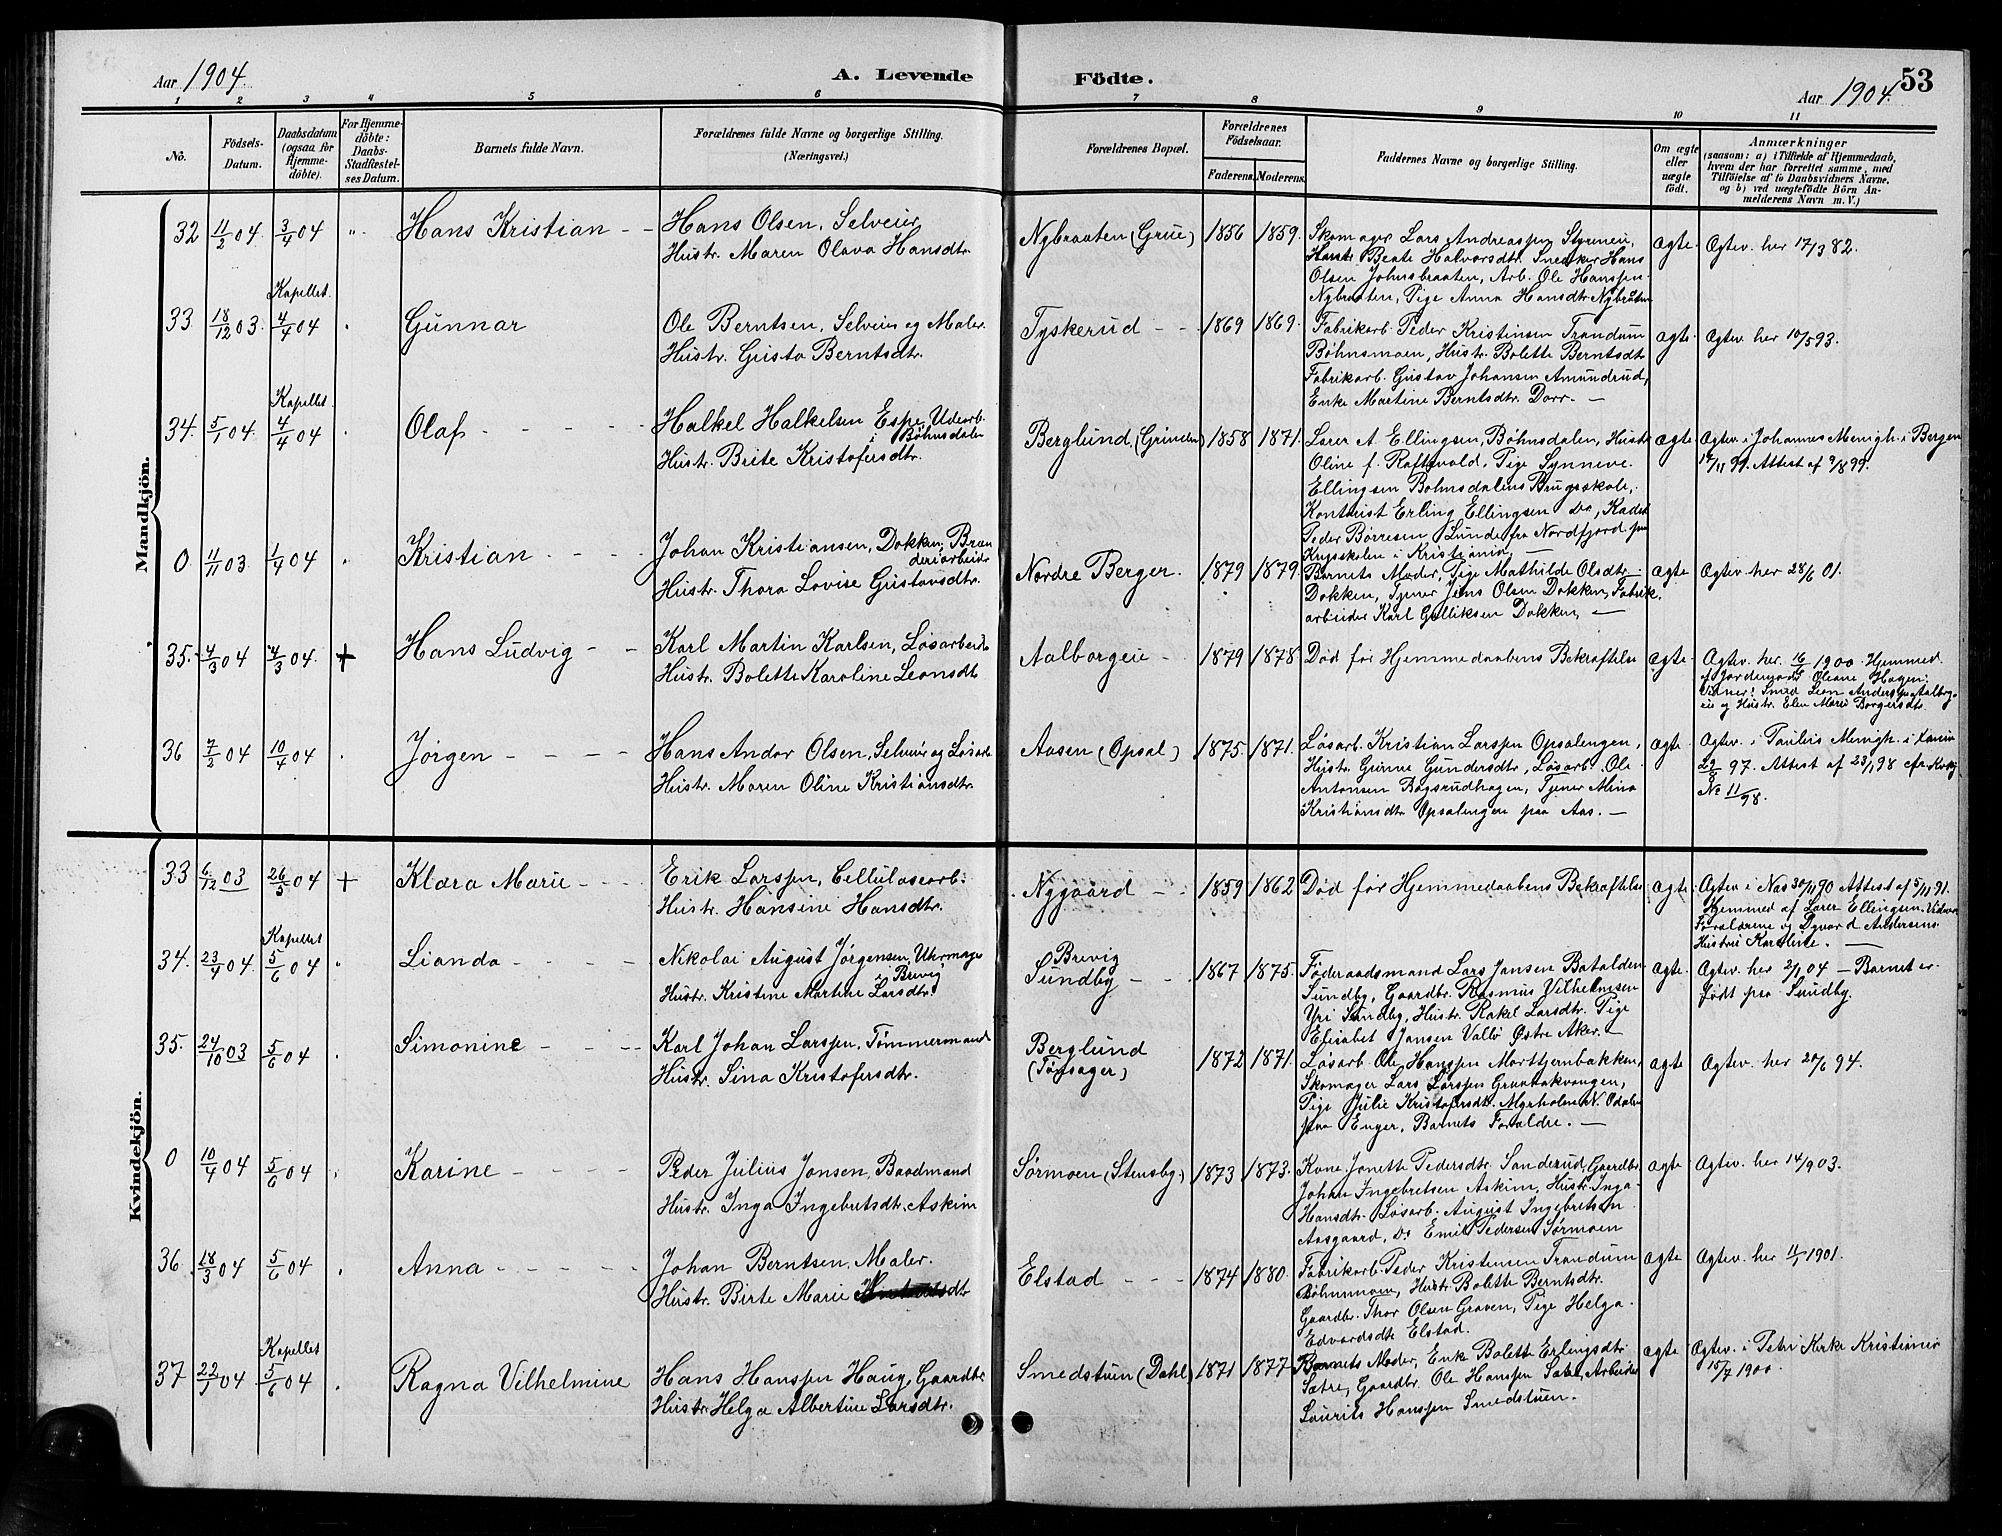 Aar 1904.
A. Levende Födte.
53
Aar 1904.
1 2 3 4 5 6 7 8 9 10 11
No.
Födsels-Datum.
Daabsdatum (ogsaa for Hjemmedöbte).
For Hjemmedöbte: Daabs-Stadfæstelses Datum.
Barnets fulde Navn.
Forældrenes fulde Navne og borgerlige Stilling. (Næringsvei.)
Forældrenes Bopæl.
Forældrenes Födselsaar.
Faderens. Moderens.
Faddernes Navne og borgerlige Stilling.
Om ægte eller uægte födt.
Anmærkninger (saasom: a) i Tilfælde af Hjemmedaab, hvem der har forrettet samme, med Tilföielse af to Daabsvidners Navne, og b) ved uægtefödte Börn Anmelderens Navn m. V.)
Mandkjön.
32 11/2 04. 3/4 04 " Hans Kristian - - Hans Olsen, Selveier,
Hustr. Maren Olava Hansdtr.
Nybraaten (Grue) 1856 1859.
Skomager Lars Andreassen Styrmeie,
Hustr. Beate Halvorsdtr. Snedker Hans
Olsen Johnsbraaten, Arb. Ole Hanssen
Nybraaten, Pige Anna Hansdtr. Nybraaten
ægte. Ægtev. her 17/3 82.
33 18/12 03. Kapellet 4/4 04 Gunnar
Ole Berntsen, Selveier og Maler.
Hustr. Gusta Berntsdtr.
Tyskerud - - 1869 1869.
Fabrikarb. Peder Kristinsen Trandum
Böhnsmoen, Hustr. Bolette Berntsdtr
Fabrikarb. Gustav Johansen Amundrud,
Enke Martine Berntsdtr. Dorr. —
ægte. Ægtev. her 10/5 93.
34. 5/1 04. Kapellet 4/4 04 Olaf - - - -
Halkel Halkelsen Espe, Udearb.
i Böhnsdalen
Hustr. Brite Kristofersdtr.
Berglund, (Grinden) 1858 1871.
Lærer A. Ellingsen, Böhnsdalen, Hustr
Oline f. Raftevold, Pige Synneve
Ellingsen Böhnsdalens Brugsskole,
Kontorist Erling Ellingsen Do, Kadet
Peder Börresen Lunde fra Nordfjord paa
Krigsskolen i Kristiania, —
ægte Ægtev. i Johannes Menigh. i Bergen
12/11 97. Attest af 9/8 99.
0 11/11 03 1/4 04 Kristian - - - -
Johan Kristiansen, Dokken, Bræn
deriarbeider
Hustr. Thora Lovise Gustavsdtr.
Nordre Berger. 1879 1879.
Barnets Moder, Pige Mathilde Olsdtr.
Dokken, Tjener Jens Olsen Dokken, Fabrik
arbeider Karl Gulliksen Dokken, —
ægte Ægtev. her 28/6 01.
35. 4/3 04 4/3 04. + Hans Ludvig - -
Karl Martin Karlsen, Lösarbeid.
Hustr. Bolette Karoline Leonsdtr
Aalborgeie - 1879 1878
Död för Hjemmedaabens Bekræftelse
ægte. Ægtev. her. 16/6 1900. Hjemmed.
af Jordemoder Oleane Hagen:
Vidner: Smed Leon Anderssen Aalborg-
eie og Hustr. Elen Marie Borgersdtr.
36 7/2 04 10/4 04 Jörgen - - - -
Hans Andor Olsen, Selveier og Lösarb.
Hustr. Maren Oline Kristiansdtr.
Aasen (Opsal) 1875. 1871.
Lösarb. Kristian Larssen Opsalengen,
Hustr. Grinne Gundersdtr, Lösarb. Ole
Antonsen Bögsrudhagen, Tjener Mina
Kristiansdtr Opsalengen paa Aas. —
ægte. Ægtev. i Paulus Menigh. i Kania
29/8 97. Attest af 23/1 98
No 11/98.
Kvindekjön.
33 6/12 03 26/5 04 + Klara Marie - - -
Erik Larssen, Cellulosearb.
Hustr. Hansine Hansdtr.
Nygaard - - 1859 1862
Död för Hjemmedaabens Bekræftelse
ægte Ægtev i Næs 30/11 90 Attest af 5/11 91.
Hjemmed af Lærer Ellingsen. Vidner
Forældrene og Andersens
Hustru Karoline. —
34. 23/4 04. Kapellet 5/6 04 Lianda - - - -
Nikolai August Jörgensen, Uhrmager
i Brevig
Hustr. Kristine Martine Larsdtr.
Brevig
Sundby - - 1867 1875.
Föderaadsmand Lars Jansen Batalden
Sundby, Gaardbr. Rasmus Vilhelmsen
Yri Sundby, Hustr. Rakel Larsdtr. Pige
Elisabet Jansen Vallö Östre Aker. —
ægte. Ægtev. her 2/1 04 — Barnet er
födt paa Sundby.
35. 24/10 03 5/6 04 Simonine - - - -
Karl Johan Larssen, Tömmermand
Hustr. Sina Kristofersdtr.
Berglund
(Tönsager) 1872 1871.
Lösarb. Ole Hanssen Morttjernbakken,
Skomager Lars Larssen
Pige Julie Kristofersdtr. Myrholen N. Odalen
paa Enger, Barnets Forældre. —
ægte Ægtev. her 20/6 94.
0 10/4 04 5/6 04 Karine - - - -
Peder Julius Jonsen, Baadmand
Hustr. Inga Ingebretsdtr. Askim
Sörmoen (Stensby) 1873 1873.
Kone Jonette Pedersdtr. Sanderud, Gaardbr.
Johan Ingebretsen Askim, Hustr. Inga
Hansdtr. Lösarb. August Ingebretsen
Aasgaard, Do Emil Pedersen Sörmoen
ægte Ægtev. her 14/9 03.
36. 18/3 04 5/6 04 Anna - - - - -
Johan Berntsen, Maler.
Hustr. Birte Marie
Elstad - - - 1874 1880.
Fabrikarb. Peder Kristensen Trandum
Böhnsmoen, Hustr. Bolette Berntsdtr.
Gaardbr. Thor Olsen Graven, Pige Helga
Edvardsdtr Elstad.
ægte Ægtev. her 1901.
37 22/1 04 Kapellet 5/6 04 Ragna Vilhelmine
Hans Hanssen Haug, Gaardbr
Hustr. Helga Albertine Larsdtr.
Smedstuen (Dahl) 1871 1877
Barnets Moder, Enke Bolette Erlingsdtr.
Sætre, Gaardbr. Ole Hanssen Sætre, Arbeider
Laurits Hanssen Smedstuen.
ægte Ægtev. i Petri Kirke Kristiania
15/7 1900